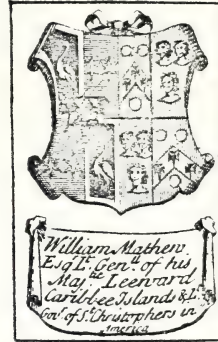 William Mathew
Esqr. Lt. Genll. of his
Majtie Leeward
Caribbee Islands & Lt.
Govr. of St. Christophers in
America